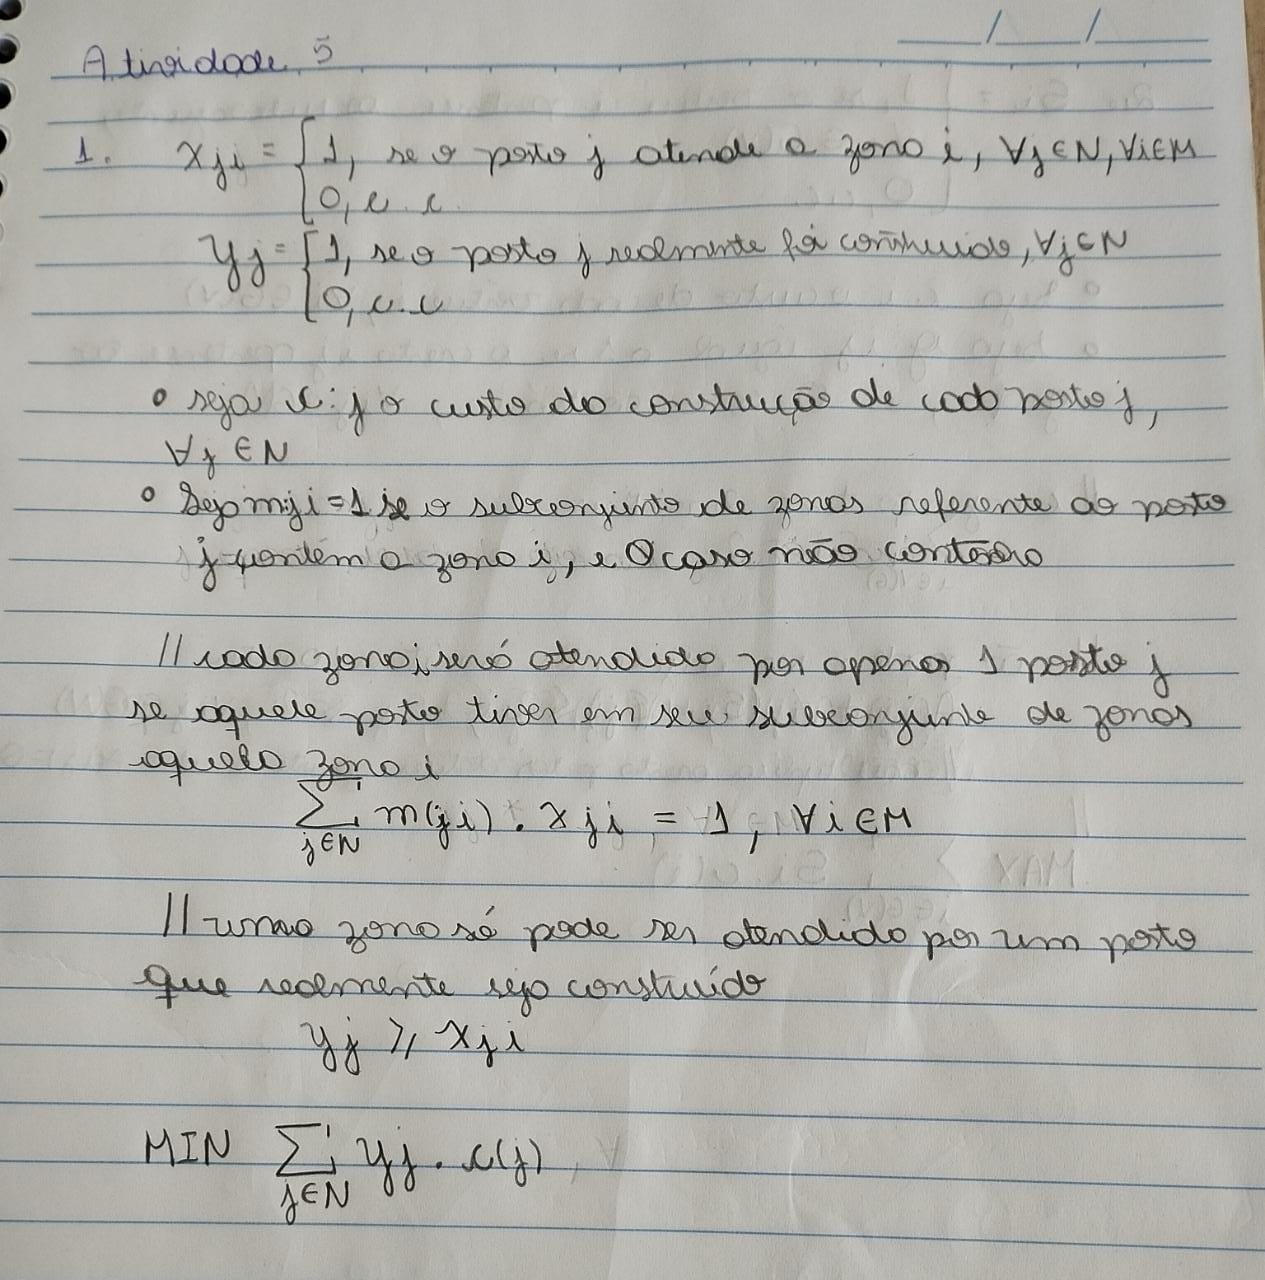 Atividade 5
__/__/__
1. xji = { 1, se o posto j atende a zona i, ∀j∈N, ∀i∈M
0, c.c
yj = { 1, se o posto j realmente foi construido, ∀j∈N
0, c.c
• seja c:j o custo da construção de cada posto j,
∀j ∈ N
• Seja mji = 1 se o subconjunto de zonas referente ao posto
j contém a zona i, e 0 caso não contenha
// cada zona i será atendida por apenas 1 posto j
se aquele posto tiver em seu subconjunto de zonas
aquela zona i
∑ m(ji) . xji = 1, ∀i ∈ M
j∈N
// uma zona só pode ser atendida por um posto
que realmente seja construído
yj ≥ xji
MIN ∑ yj . c(j)
j∈N